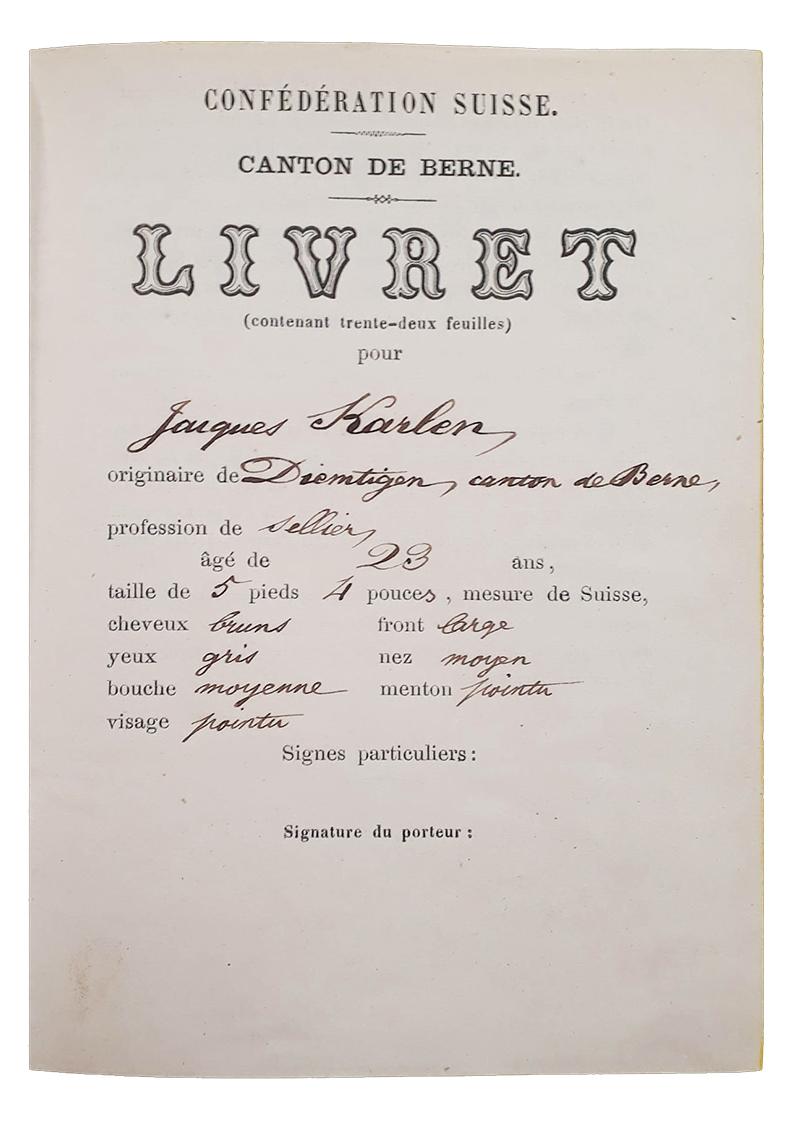 CONFÉDÉRATION SUISSE.
CANTON DE BERNE.
LIVRET
(contenant trente-deux feuilles)
pour
Jacques Karlen,
originaire de Diemtigen, canton de Berne,
profession de sellier,
âgé de 23 ans,
taille de 5 pieds 4 pouces, mesure de Suisse,
cheveux bruns front large
yeux gris nez moyen
bouche moyenne menton pointu
visage pointu
Signes particuliers:
Signature du porteur: